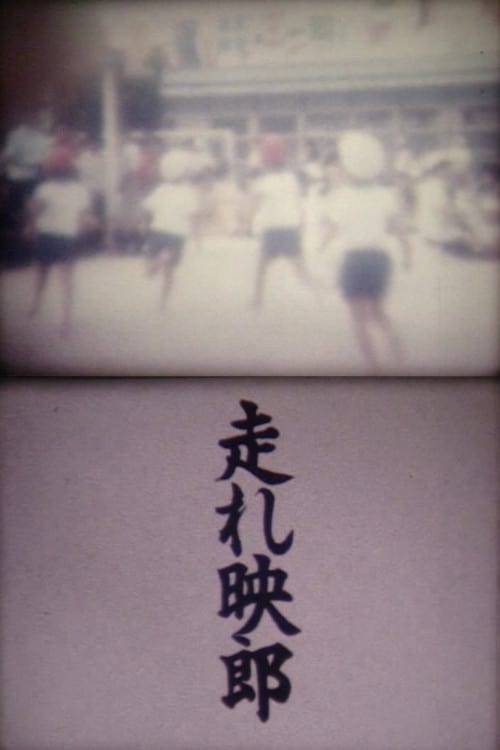 走れ映郎